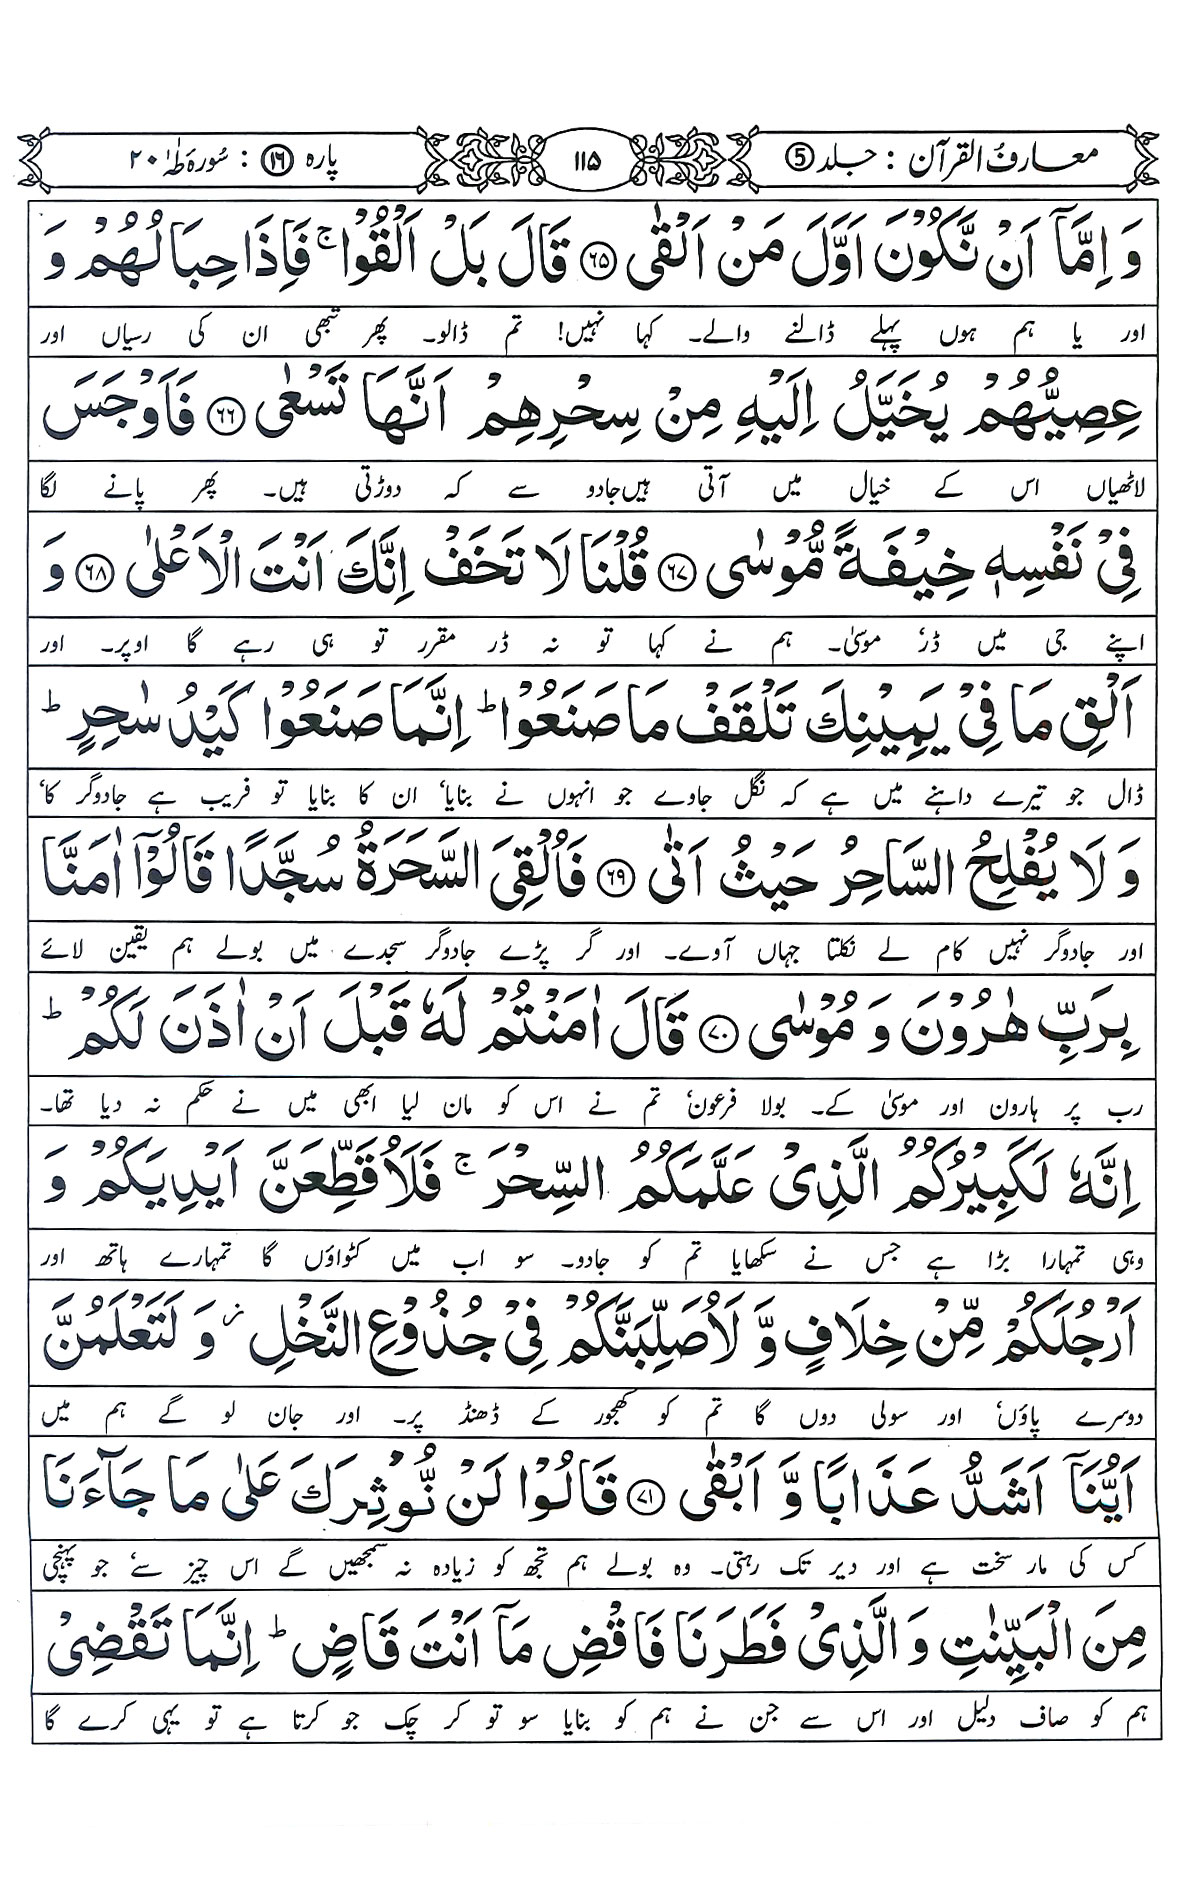 معارف القرآن : جلد ⑤
١١٥
پارہ ⑯ : سُورہ طٰہٰ ٢٠
وَ اِمَّآ اَنْ نَّكُوْنَ اَوَّلَ مَنْ اَلْقٰى ۶۵ قَالَ بَلْ اَلْقُوْا ۚ فَاِذَا حِبَالُهُمْ وَ
اور یا ہم ہوں پہلے ڈالنے والے۔ کہا نہیں! تم ڈالو۔ پھر تبھی ان کی رسیاں اور
عِصِيُّهُمْ يُخَيَّلُ اِلَيْهِ مِنْ سِحْرِهِمْ اَنَّهَا تَسْعٰى ۶۶ فَاَوْجَسَ
لاٹھیاں اس کے خیال میں آتی ہیں جادو سے کہ دوڑتی ہیں۔ پھر پانے لگا
فِيْ نَفْسِهٖ خِيْفَةً مُّوْسٰى ۶۷ قُلْنَا لَا تَخَفْ اِنَّكَ اَنْتَ الْاَعْلٰى ۶۸ وَ
اپنے جی میں ڈر‘ موسیٰ۔ ہم نے کہا تو نہ ڈر مقرر تو ہی رہے گا اوپر۔ اور
اَلْقِ مَا فِيْ يَمِيْنِكَ تَلْقَفْ مَا صَنَعُوْا ؕ اِنَّمَا صَنَعُوْا كَيْدُ سٰحِرٍ ؕ
ڈال جو تیرے داہنے میں ہے کہ نگل جاوے جو انہوں نے بنایا‘ ان کا بنایا تو فریب ہے جادوگر کا‘
وَ لَا يُفْلِحُ السَّاحِرُ حَيْثُ اَتٰى ۶۹ فَاُلْقِيَ السَّحَرَةُ سُجَّدًا قَالُوْٓا اٰمَنَّا
اور جادوگر نہیں کام لے نکلتا جہاں آوے۔ اور گر پڑے جادوگر سجدے میں بولے ہم یقین لائے
بِرَبِّ هٰرُوْنَ وَ مُوْسٰى ۷۰ قَالَ اٰمَنْتُمْ لَهٗ قَبْلَ اَنْ اٰذَنَ لَكُمْ ؕ
رب پر ہارون اور موسیٰ کے۔ بولا فرعون‘ تم نے اس کو مان لیا ابھی میں نے حکم نہ دیا تھا۔
اِنَّهٗ لَكَبِيْرُكُمُ الَّذِيْ عَلَّمَكُمُ السِّحْرَ ۚ فَلَاُقَطِّعَنَّ اَيْدِيَكُمْ وَ
وہی تمہارا بڑا ہے جس نے سکھایا تم کو جادو۔ سو اب میں کٹواؤں گا تمہارے ہاتھ اور
اَرْجُلَكُمْ مِّنْ خِلَافٍ وَّ لَاُصَلِّبَنَّكُمْ فِيْ جُذُوْعِ النَّخْلِ ز وَ لَتَعْلَمُنَّ
دوسرے پاؤں‘ اور سولی دوں گا تم کو کھجور کے ڈھنڈ پر۔ اور جان لو گے ہم میں
اَيُّنَآ اَشَدُّ عَذَابًا وَّ اَبْقٰى ۷۱ قَالُوْا لَنْ نُّؤْثِرَكَ عَلٰى مَا جَآءَنَا
کس کی مار سخت ہے اور دیر تک رہتی۔ وہ بولے ہم تجھ کو زیادہ نہ سمجھیں گے اس چیز سے‘ جو پہنچی
مِنَ الْبَيِّنٰتِ وَ الَّذِيْ فَطَرَنَا فَاقْضِ مَآ اَنْتَ قَاضٍ ؕ اِنَّمَا تَقْضِيْ
ہم کو صاف دلیل اور اس سے جن نے ہم کو بنایا سو تو کر چک جو کرتا ہے تو یہی کرے گا